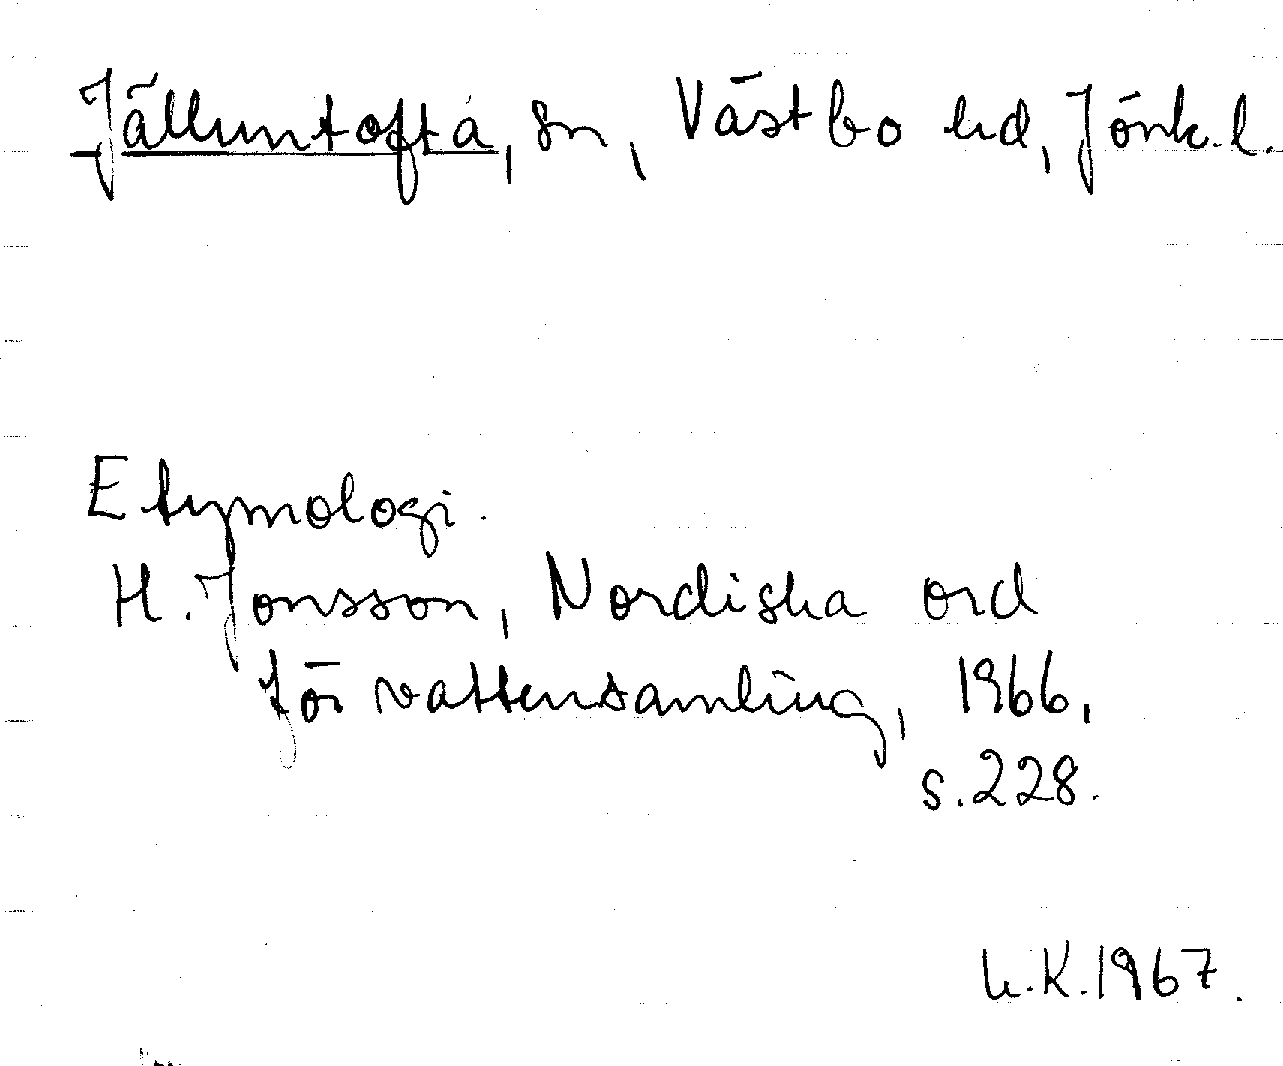 Jälluntofta, sn, Västbo hd, Jönk. l.
Etymologi.
H. Jonsson, Nordiska ord
för vattensamling, 1966,
s. 228.
L.K. 1967.